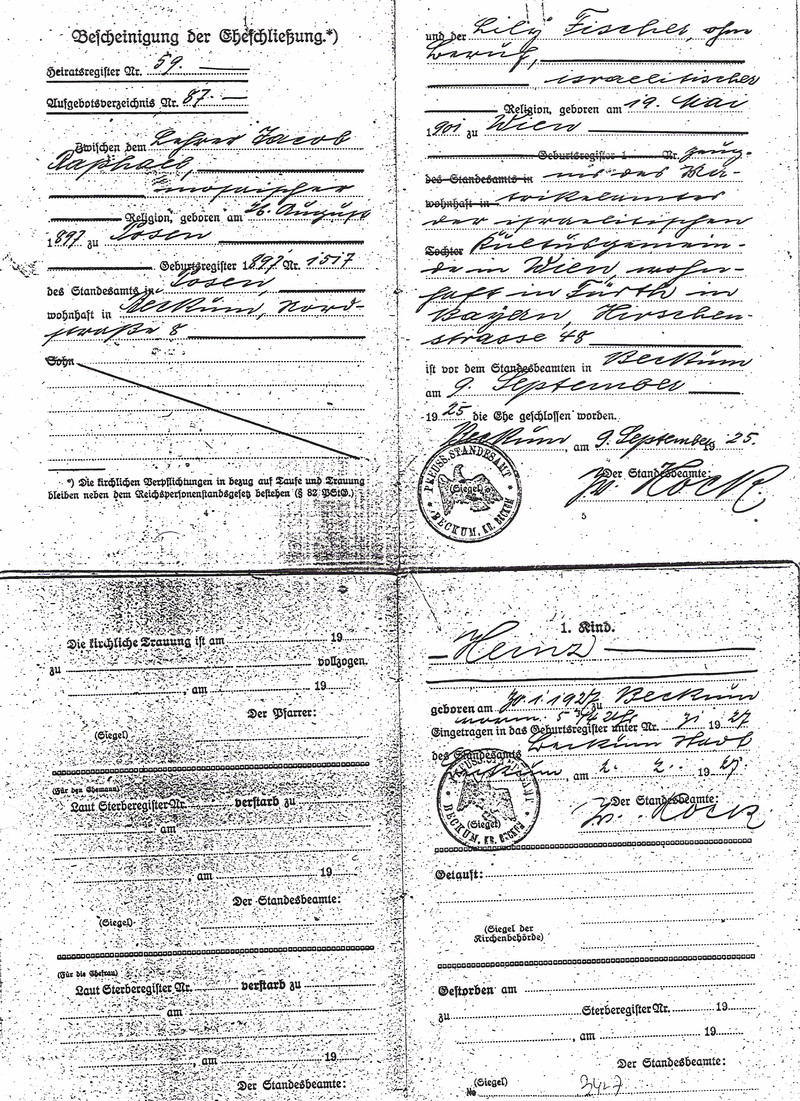 Bescheinigung der Eheschließung.*)
Heiratsregister Nr. 59.
Aufgebotsverzeichnis Nr. 87.
Zwischen dem Lehrer Jacob
Raphael,
mosaischer
Religion, geboren am 26. August
1897 zu Posen
Geburtsregister 1897 Nr. 1517
des Standesamts in Posen,
wohnhaft in Beckum, Nord-
straße 8
Sohn
*) Die kirchlichen Verpflichtungen in bezug auf Taufe und Trauung
bleiben neben dem Reichspersonenstandsgesetz bestehen (§ 82 PStG.)
und der Lily Fischer, ohne
Beruf,
israelitischer
Religion, geboren am 19. Mai
1901 zu Wien
Geburtsregister 1 Nr. Zeug-
des Standesamts in nis des Ma-
wohnhaft in trikelamtes
der israelitischen
Tochter Kultusgemein-
de in Wien, wohn-
haft in Fürth in
Bayern, Hirschen-
strasse 48
ist vor dem Standesbeamten in Beckum
am 9. September
1925 die Ehe geschlossen worden.
Beckum, am 9. September 1925.
Der Standesbeamte:
Kock
PREUSS. STANDESAMT
(Siegel)
BECKUM, KR. BECKUM
5
Die kirchliche Trauung ist am 19
zu vollzogen.
, am 19
Der Pfarrer:
(Siegel)
(Für den Ehemann)
Laut Sterberegister Nr. verstarb zu
am
, am 19
Der Standesbeamte:
(Siegel)
(Für die Ehefrau)
Laut Sterberegister Nr. verstarb zu
am
, am 19
Der Standesbeamte:
1. Kind.
Heinz
geboren am 30.1.1927 zu Beckum
vorm. 5 3/4 Uhr
Eingetragen in das Geburtsregister unter Nr. 1927
des Standesamts Beckum Stadt
Beckum, am 2. 2. 1927.
Der Standesbeamte:
Kock
PREUSS. STANDESAMT
(Siegel)
BECKUM, KR. BECKUM
Getauft:
(Siegel der
Kirchenbehörde)
Gestorben am
zu Sterberegister Nr. 19
, am 19
Der Standesbeamte:
(Siegel)
No 3427